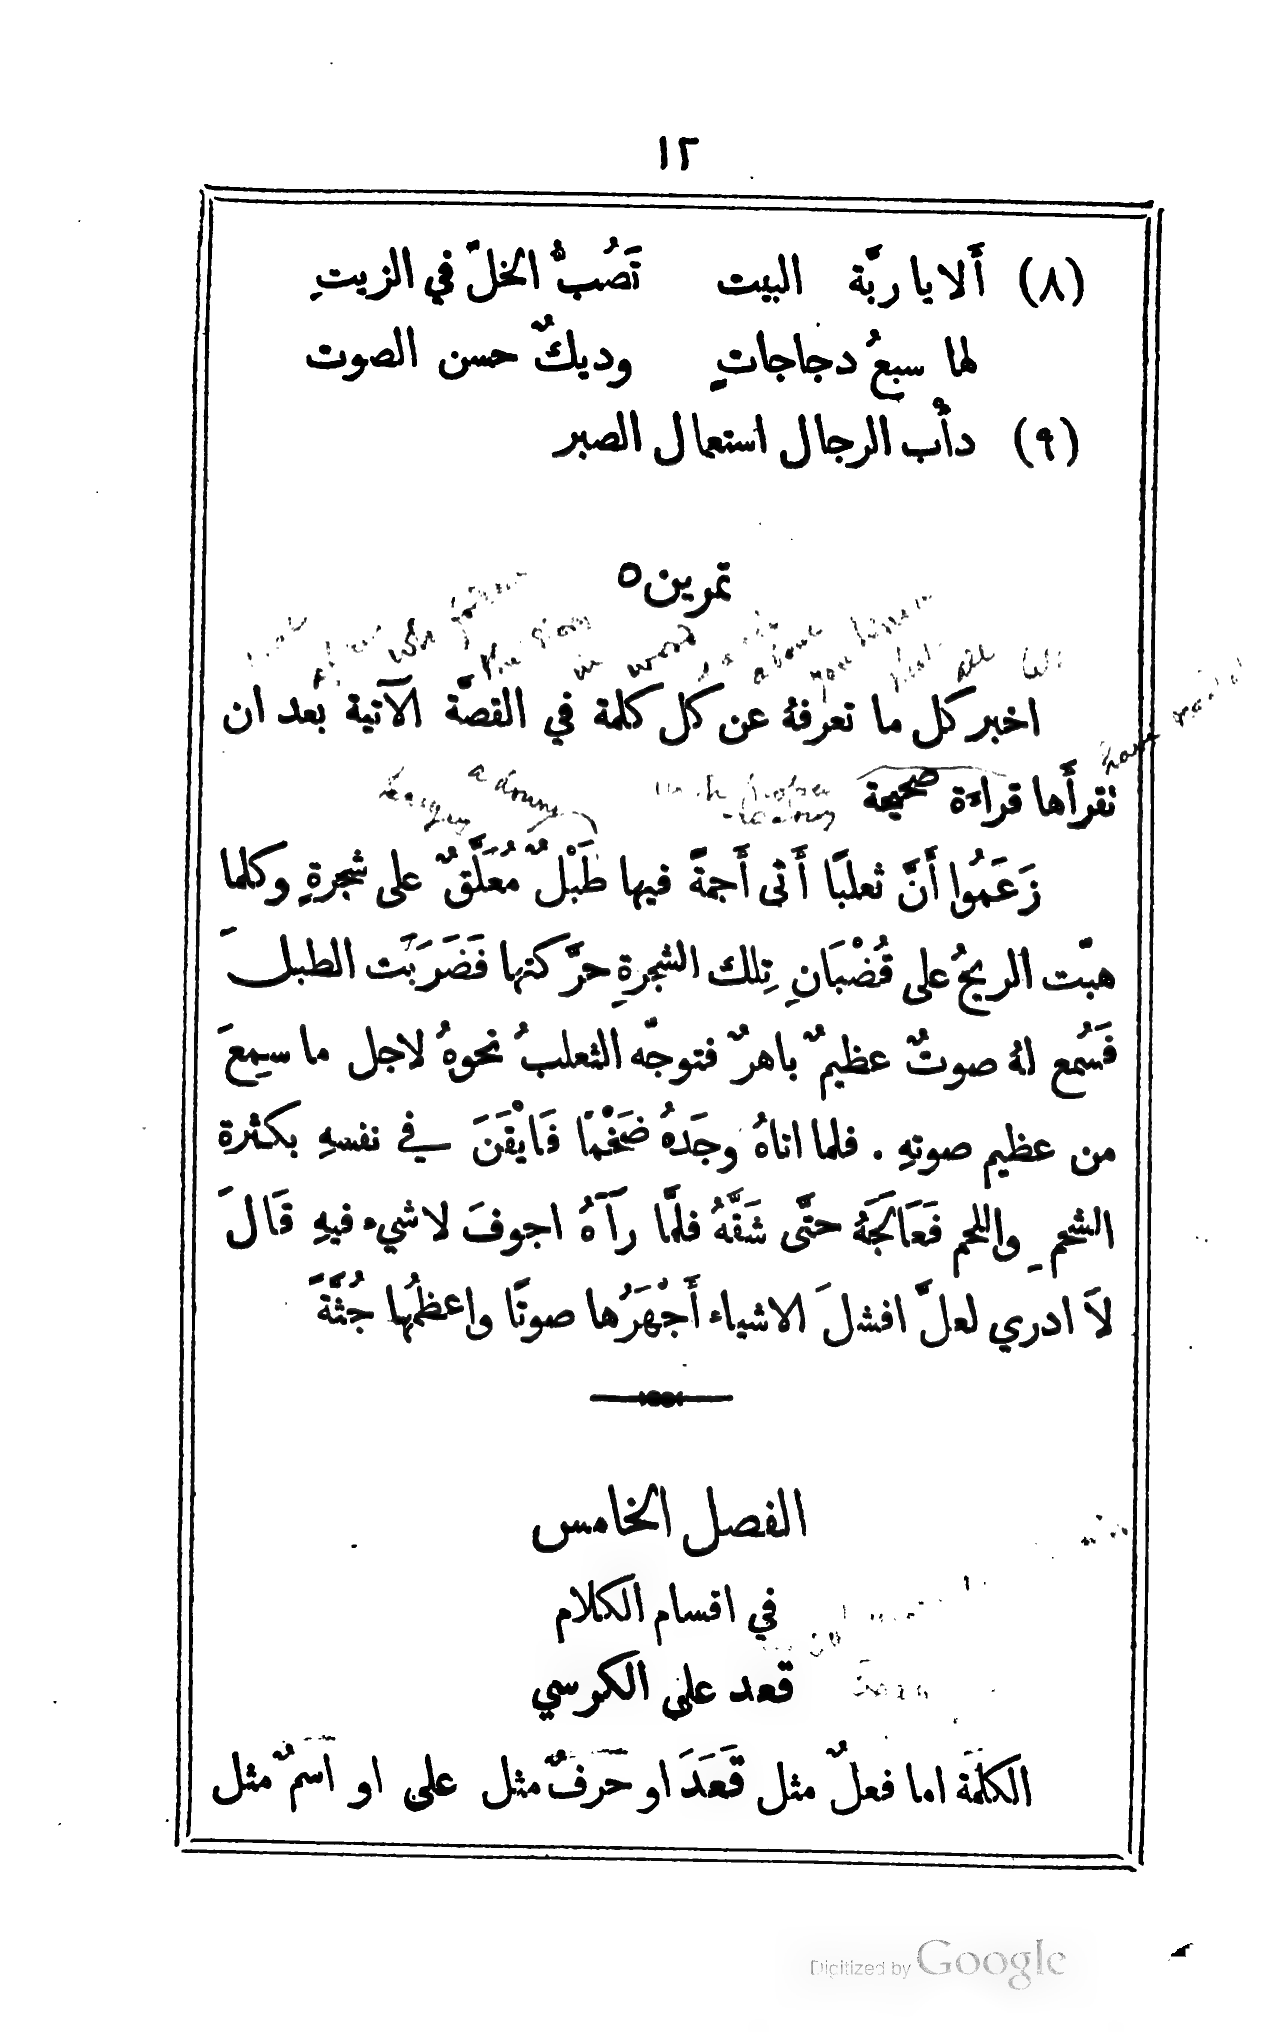 ١٢
(٨) أَلا يا ربَّة البيت تَصُبُّ الخلَّ في الزيتِ
لها سبعُ دجاجاتٍ وديكٌ حسن الصوت
(٩) دأْب الرجال استعمال الصبر
تمرين ٥
the story
in
word
above
you
all
اخبر كل ما تعرفهُ عن كل كلمة في القصَّة الآتية بعد ان
have
تقرأَها قراءة صحيحة
a drum
زَعَمُوا أَنَّ ثعلبًا أَتى أَجمةً فيها طَبْلٌ مُعَلَّقٌ على شجرةٍ وكلما
هبّت الريحُ على قُضْبَانِ تِلك الشجرةِ حرَّكتها فَضَرَبَت الطبلَ
فَسُمع لهُ صوتٌ عظيمٌ باهرٌ فتوجّه الثعلبُ نحوهُ لاجل ما سمِعَ
من عظيم صوتهِ . فلما اتاهُ وجَدهُ ضَخْمًا فَايْقَنَ في نفسهِ بكثرة
الشحمِ واللحم فَعَالَجَهُ حتَّى شَقَّهُ فلَمَّا رآهُ اجوفَ لا شيء فيهِ قَالَ
لاَ ادري لعلَّ افشلَ الاشياء أَجْهَرُها صوتًا واعظمُها جُثَّةً
الفصل الخامس
في اقسام الكلام
قعد على الكرسي
الكلمَة اما فعلٌ مثل قَعَدَ او حَرفٌ مثل على او اسمٌ مثل
Digitized by Google